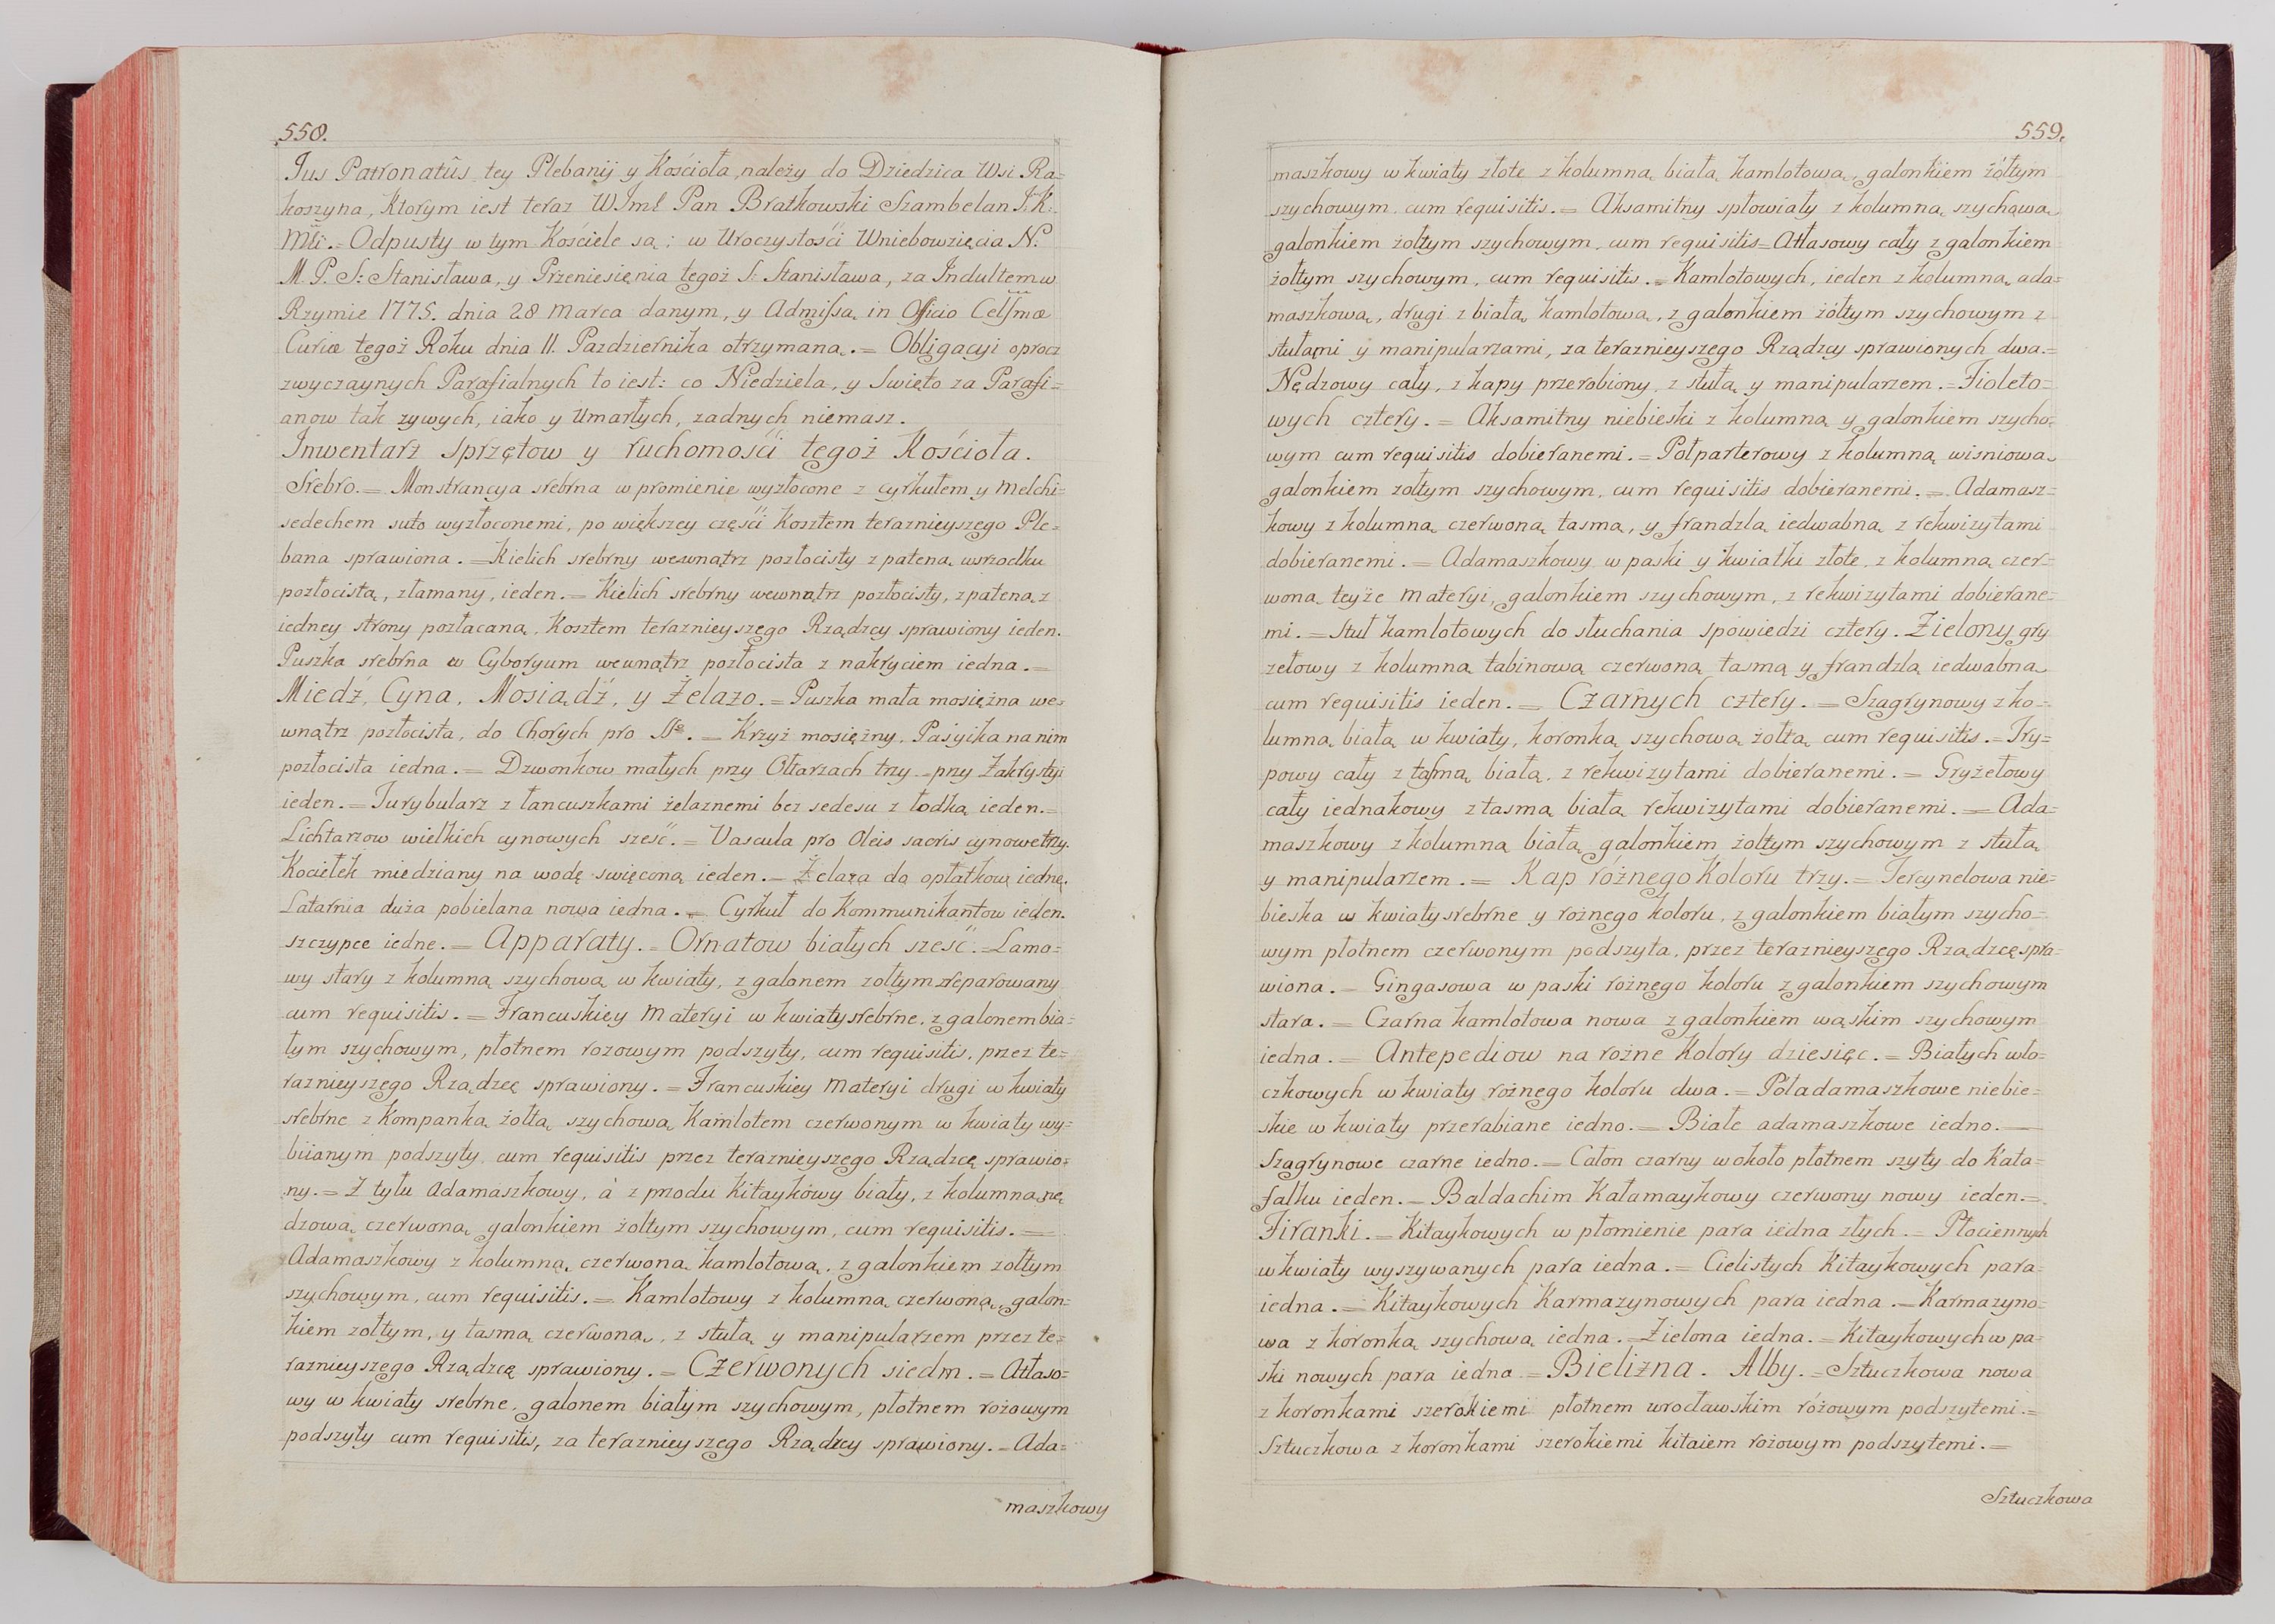 558.
Jus Patronatûs tey Plebanij y Kościoła należy do Dziedzica Wsi Ra=
koszyna, Ktorym iest teraz WJmć Pan Bratkowski Szambelan J. K:
Mći. = Odpusty w tym Kościele są: w Uroczystości Wniebowzięcia N.
M. P. S: Stanisława, y Przeniesięnia tegoż S: Stanisława, za Indultem w
Rzymie 1775. dnia 28 Marca danym, y Admissą in Officio Celsmæ
Curiæ tegoż Roku dnia 11. Pazdziernika otrzymaną. = Obligacyi oprocz
zwyczaynych Parafialnych to iest: co Niedziela, y Swięto za Parafi=
anow tak zywych, iako y Umarłych, zadnych niemasz.
Inwentarz sprzętow y ruchomości tegoż Kościoła.
Srebro. = Monstrancya srebrna w promienie wyzłocone z cyrkułem y Melchi=
sedechem suto wyzłoconemi, po większey części Kosztem teraznieyszego Ple=
bana sprawiona. = Kielich srebrny wewnątrz pozłocisty z pateną wsrzodku
pozłocistą, złamany, ieden. = Kielich srebrny wewnątrz pozłocisty, z pateną z
iedney strony pozłacaną, Kosztem teraznieyszego Rządzcy sprawiony ieden.
Puszka srebrna w Cyboryum wewnątrz pozłocista z nakryciem iedna. =
Miedź, Cyna, Mosiądź, y Żelazo. = Puszka mała mosiężna we=
wnątrz pozłocista, do Chorych pro No. = Krzyż mosiężny, Pasyika na nim
pozłocista iedna. = Dzwonkow małych przy Ołtarzach trzy = przy Zakrystyi
ieden. = Turybularz z łancuszkami żelaznemi bez sedesu z łodką ieden. =
Lichtarzow wielkich cynowych sześć. = Vascula pro Oleis sacris cynowe trzy.
Kociełek miedziany na wodę święconą ieden. = Żelaza do opłatkow iedne.
Latarnia duża pobielana nowa iedna. = Cyrkuł do Kommunikantow ieden.
szczypce iedne. = Apparaty. = Ornatow białych sześć. = Lamo=
wy stary z kolumną szychową w kwiaty, z galonem zołtym reparowany
cum requisitis. = Francuskiey Materyi w kwiaty srebrne, z galonem bia=
łym szychowym, płotnem rozowym podszyty, cum requisitis, przez te=
raznieyszego Rządzcę sprawiony. = Francuskiey Materyi drugi w kwiaty
srebrne z Kompanką żołtą szychową Kamlotem czerwonym w kwiaty wy=
biianym podszyty cum requisitis przez teraznieyszego Rządzcę sprawio=
ny. = Z tyłu Adamaszkowy, à z przodu Kitaykowy biały, z kolumną nę
dzową czerwoną galonkiem żołtym szychowym, cum requisitis. =
Adamaszkowy z kolumną czerwoną kamlotową, z galonkiem zołtym
szychowym, cum requisitis. = Kamlotowy z kolumną czerwoną, galon=
kiem zołtym, y tasmą czerwoną, z stułą y manipularzem przez te=
raznieyszego Rządzcę sprawiony. = Czerwonych siedm. = Atłaso=
wy w kwiaty srebrne, galonem białym szychowym, płotnem rożowym
podszyty cum requisitis, za teraznieyszego Rządzcy sprawiony. = Ada=
maszkowy
559.
maszkowy w kwiaty złote z kolumną białą kamlotową, galonkiem żółtym
szychowym, cum requisitis. = Aksamitny spłowiały z kolumną szychową
galonkiem żołtym szychowym, cum requisitis = Atłasowy cały z galonkiem
żołtym szychowym, cum requisitis. = Kamlotowych, ieden z kolumną ada=
maszkową, drugi z białą kamlotową, z galonkiem żółtym szychowym z
stułami y manipularzami, za teraznieyszego Rządzcy sprawionych dwa. =
Nędzowy cały, z kapy przerobiony, z stułą y manipularzem. = Fioleto=
wych cztery. = Aksamitny niebieski z kolumną y galonkiem szycho=
wym cum requisitis dobieranemi. = Połparterowy z kolumną wisniową
galonkiem zołtym szychowym, cum requisitis dobieranemi. = Adamasz=
kowy z kolumną czerwoną tasmą, y frandzlą iedwabną z rekwizytami
dobieranemi. = Adamaszkowy w paski y kwiatki złote, z kolumną czer=
woną teyże materyi, galonkiem szychowym, z rekwizytami dobierane=
mi. = Stuł kamlotowych do słuchania spowiedzi cztery. Zielony gry
zetowy z kolumną tabinową czerwoną tasmą y frandzlą iedwabną
cum requisitis ieden. = Czarnych cztery. = Szagrynowy z ko=
lumną białą w kwiaty, koronką szychową żołtą cum requisitis. = Try=
powy cały z tasmą białą, z rekwizytami dobieranemi. = Gryzetowy
cały iednakowy z tasmą białą rekwizytami dobieranemi. = Ada=
maszkowy z kolumną białą galonkiem żołtym szychowym z stułą
y manipularzem. = Kap różnego Koloru trzy. = Tercynelowa nie=
bieska w kwiaty srebrne y rożnego koloru, z galonkiem białym szycho=
wym płotnem czerwonym podszyta, przez teraznieyszego Rządzcę spra=
wiona. = Gingasowa w paski rożnego koloru z galonkiem szychowym
stara. = Czarna kamlotowa nowa z galonkiem wąskim szychowym
iedna. = Antepediow na rożne Kolory dziesięc. = Białych wło=
czkowych w kwiaty rożnego koloru dwa. = Póładamaszkowe niebie=
skie w kwiaty przerabiane iedno. = Białe adamaszkowe iedno. =
Szagrynowe czarne iedno. = Całon czarny wokoło płotnem szyty do Kata=
falku ieden. = Baldachim Kałamaykowy czerwony nowy ieden. =
Firanki. = Kitaykowych w płomienie para iedna złych. = Płociennych
w kwiaty wyszywanych para iedna. = Cielistych Kitaykowych para
iedna. = Kitaykowych Karmazynowych para iedna. = Karmazyno=
wa z koronką szychową iedna. = Zielona iedna. = Kitaykowych w pa=
ski nowych para iedna = Bielizna. Alby. = Sztuczkowa nowa
z koronkami szerokiemi płotnem wrocławskim różowym podszytemi. =
Sztuczkowa z koronkami szerokiemi kitaiem rożowym podszytemi. =
Sztuczkowa